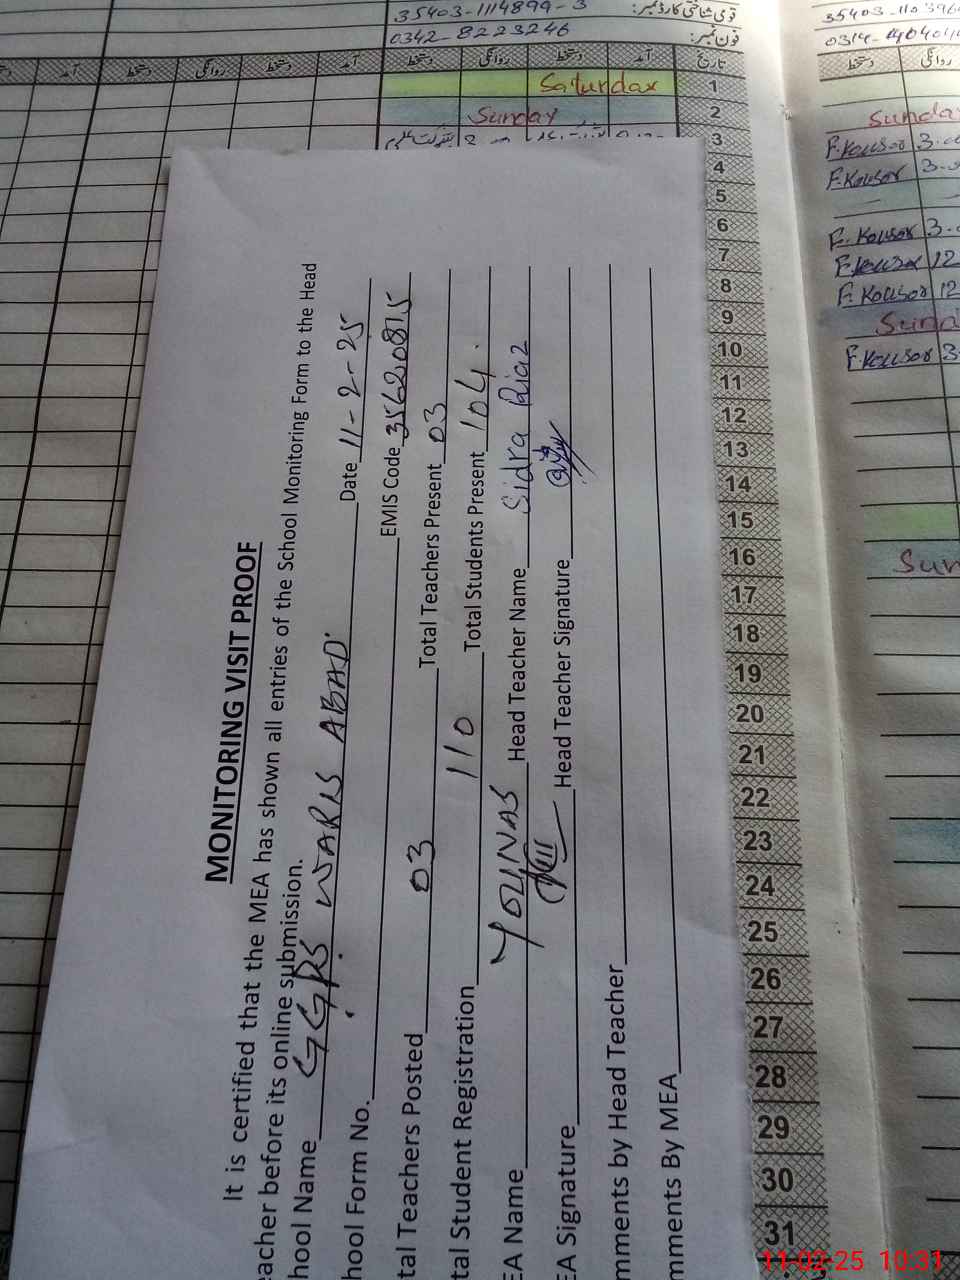 قومی شناختی کارڈ نمبر: 35403-1114899-3
فون نمبر: 0342-8223246
تاریخ آمد دستخط روانگی دستخط
1 Saturday
2 Sunday
3
4
5
6
7
8
9
10
11
12
13
14
15
16
17
18
19
20
21
22
23
24
25
26
27
28
29
30
31
MONITORING VISIT PROOF
It is certified that the MEA has shown all entries of the School Monitoring Form to the Head
eacher before its online submission.
hool Name GGPS WARIS ABAD. Date 11-2-25
hool Form No. EMIS Code 35620815
tal Teachers Posted 03 Total Teachers Present 03
tal Student Registration 110 Total Students Present 104.
EA Name YOUNAS Head Teacher Name Sidra Riaz
EA Signature Head Teacher Signature
mments by Head Teacher
mments By MEA
روانگی دستخط
Sunda
F.Kousar 3.
F.Kousar 3.
F.Kousar 3.
F.Kousar 12
F.Kousar 12
Sun
F.Kousar 3
Sun
11-02-25 10:31